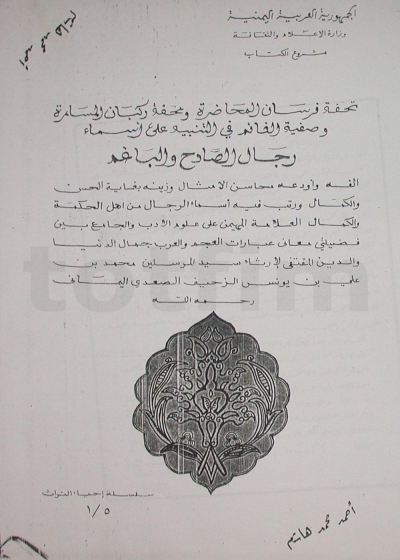 الجمهورية العربية اليمنية
وزارة الاعلام والثقافة
مشروع الكتاب
تحفة فرسان المحاضرة وتحفة ركبان المسامرة
وصفية الغانم في التنبيه على أسماء
رجال الصادح والباغم
الفه وأودعه محاسن الامثال وزينه بغاية الحسن
والكمال ورتب فيه أسماء الرجال من اهل الحكمة
والكمال العلامة المهيمن على علوم الادب والجامع بين
فضيلتي معاني عبارات العجم والعرب جمال الدنيا
والدين المقتفي لإرشاد سيد المرسلين محمد بن
علي بن يونس الزحيف الصعدي اليماني
رحمه الله
سلسلة إحياء التراث
١/٥
أحمد محمد هاشم